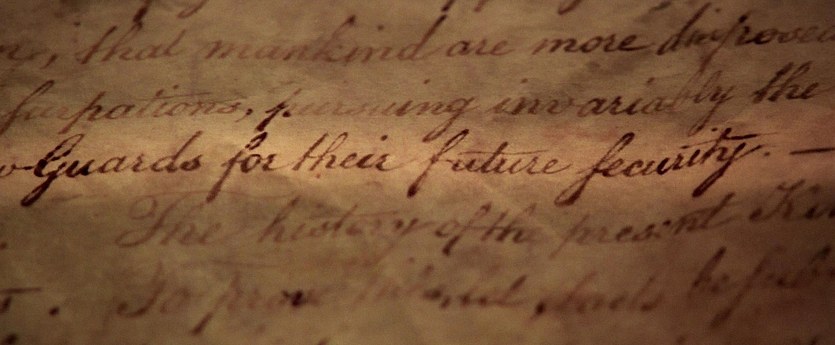 , that mankind are more disposed
ſurpations, pursuing invariably the
Guards for their future ſecurity. —
The history of the present Kin
To prove this, let facts be sub